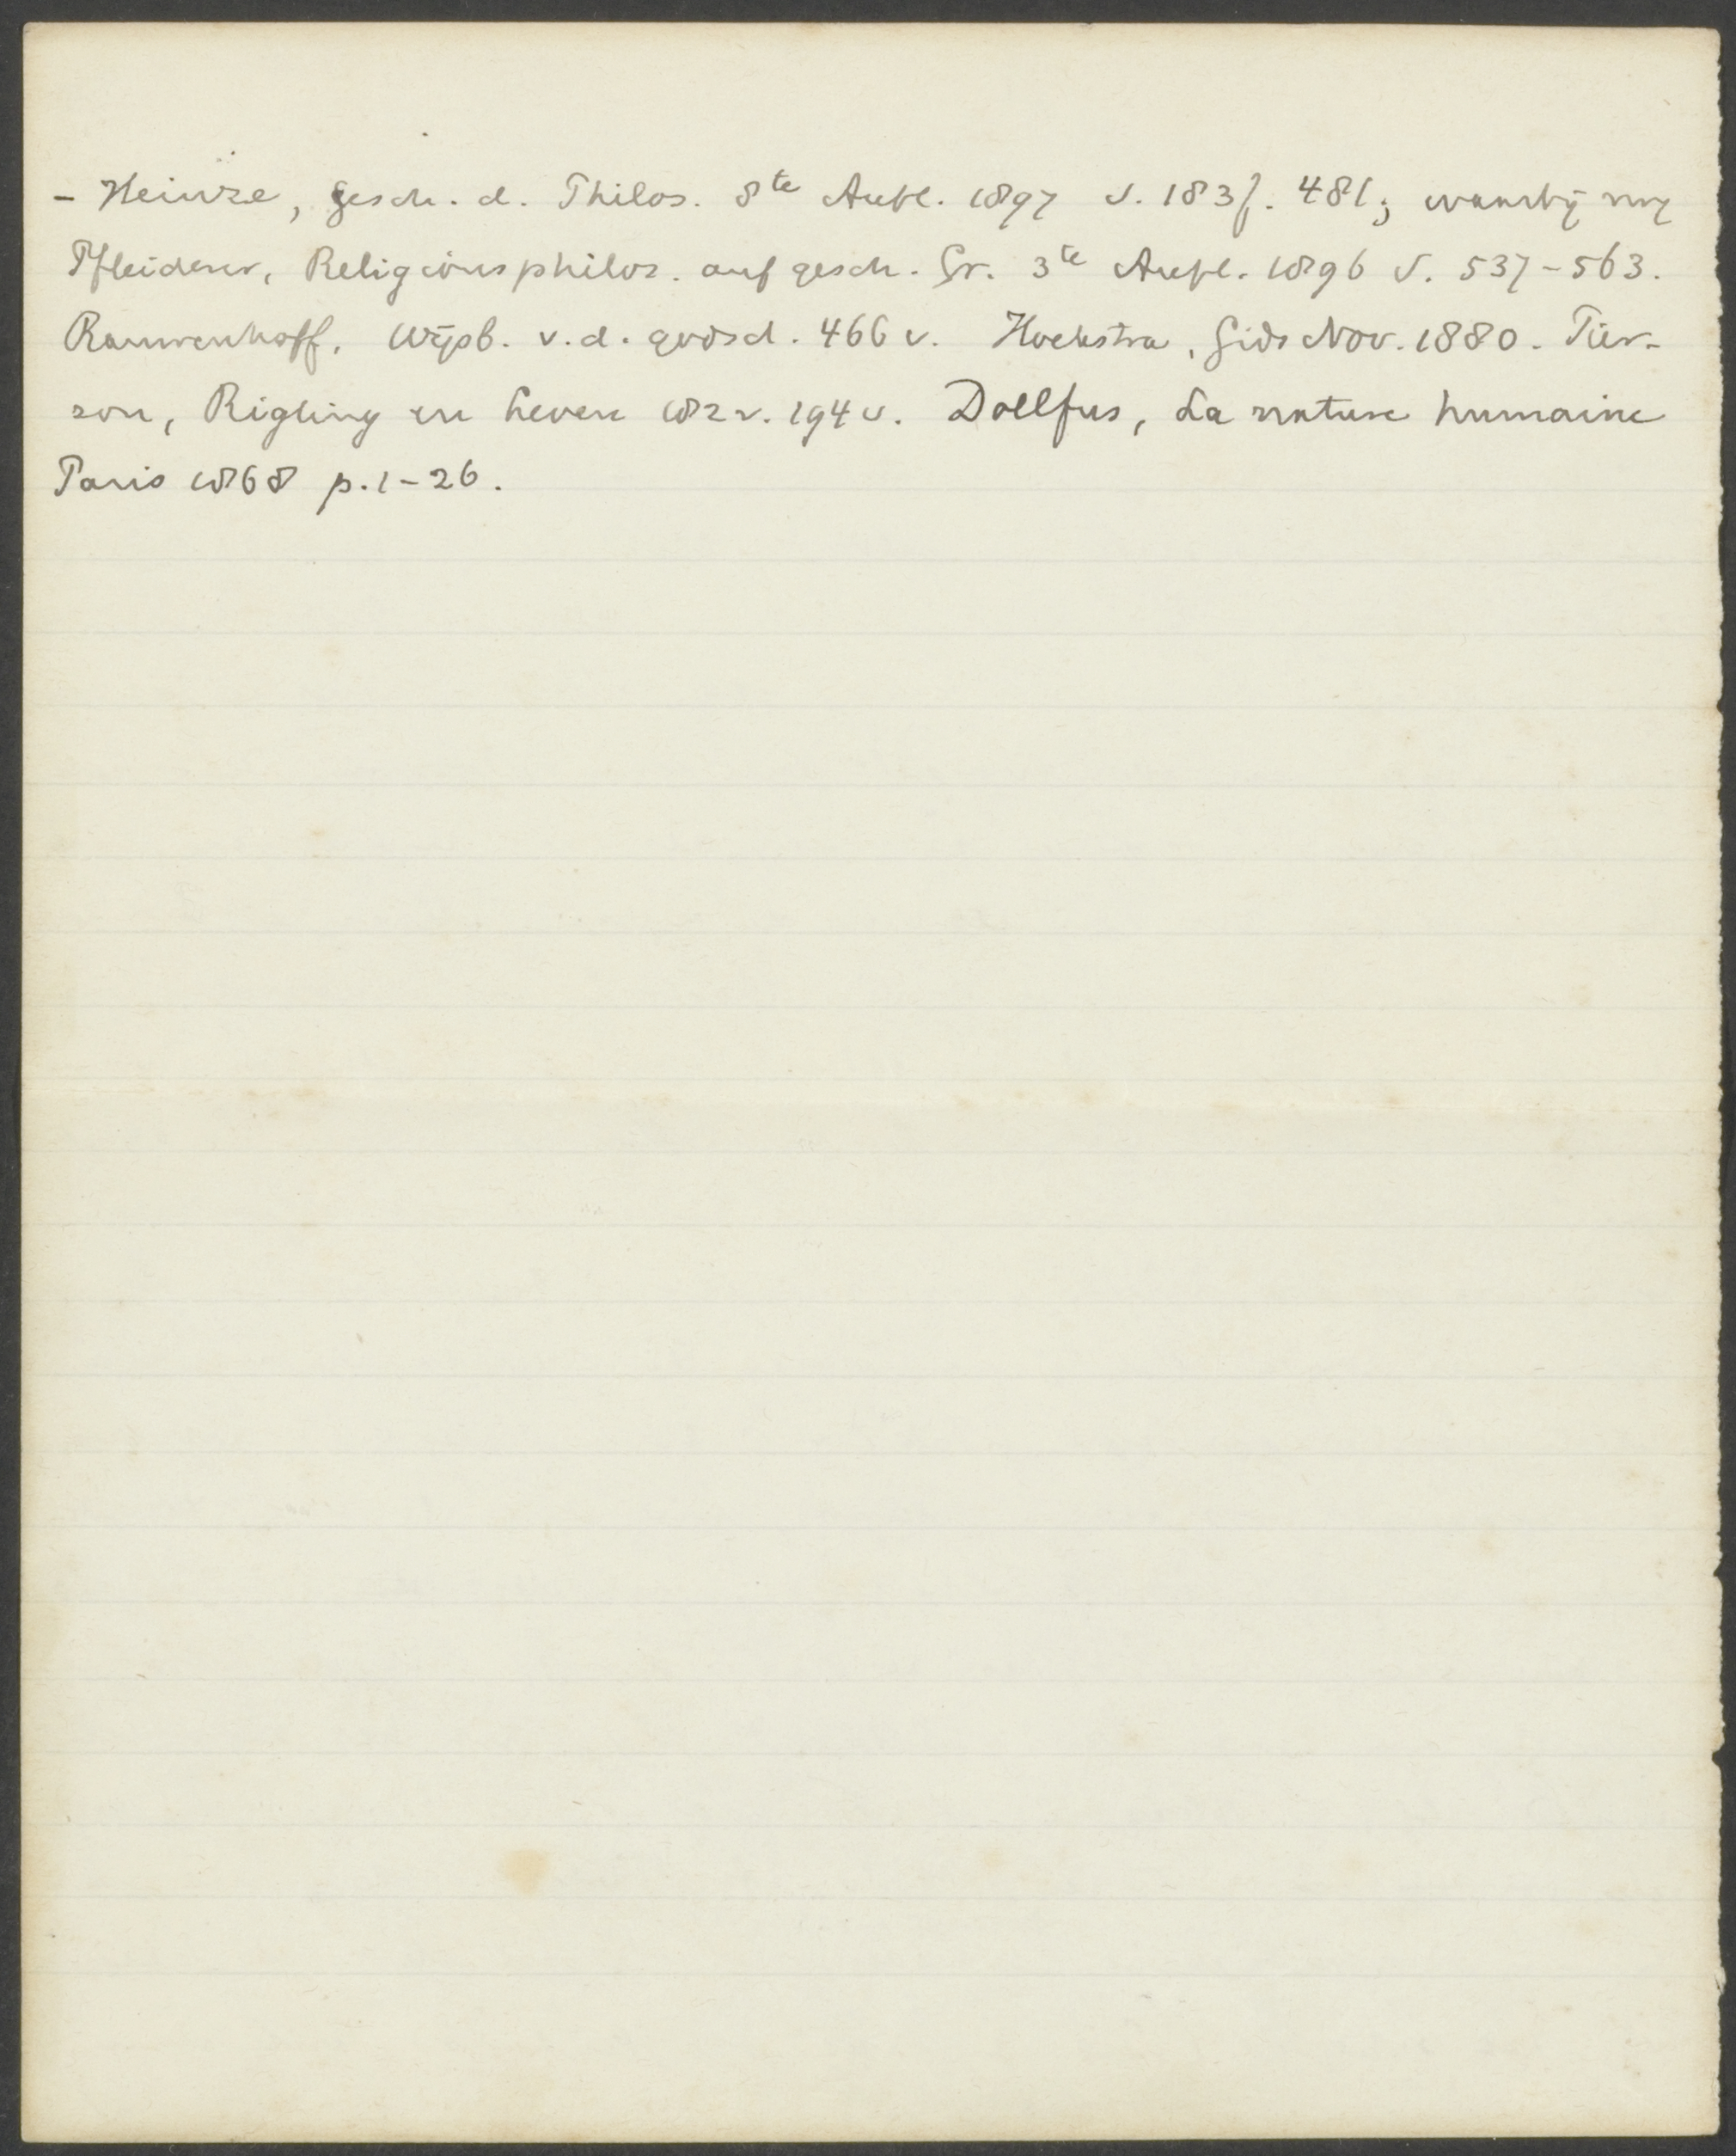 - Heinze, Gesch. d. Philos. 8te Aufl. 1897 S. 183f. 481; waarbij nog
Pfleiderer, Religionsphilos. auf gesch. Gr. 3te Aufl. 1896 S. 537-563.
Rauwenhoff, Wijsb. v. d. godsd. 466 v. Hoekstra, Gids Nov. 1880. Pier-
son, Rigting en Leven 182 v. 194 v. Dollfus, La nature humaine
Paris 1868 p. 1-26.